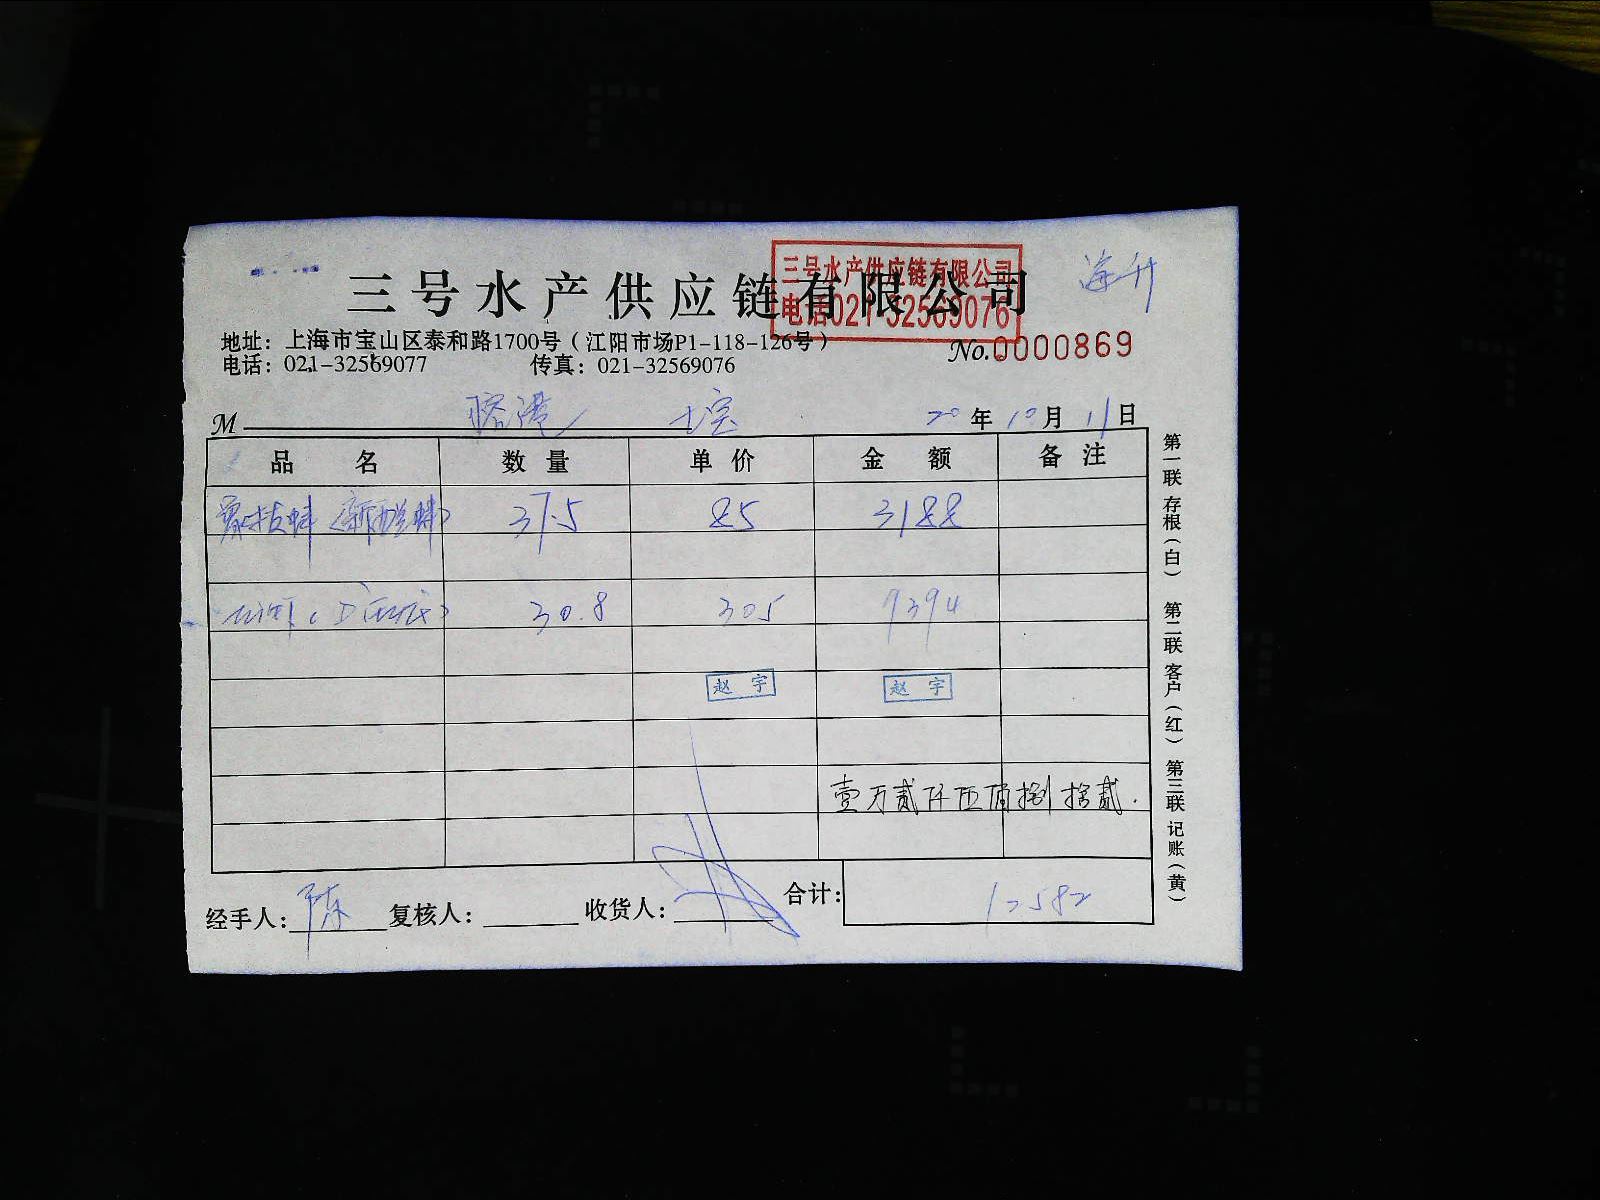 三号水产供应链有限公司
三号水产供应链有限公司
电话021-32569076
海升
地址：上海市宝山区泰和路1700号（江阳市场P1-118-126号）
电话：021-32569077 传真：021-32569076
No.0000869
M
20年10月11日
品 名 数 量 单 价 金 额 备 注
37.5 85 3188
30.8 305 9394
赵 宇 赵 宇
壹万贰仟伍佰捌拾贰.
经手人：陈 复核人： 收货人： 合计：12582
第一联 存根（白） 第二联 客户（红） 第三联 记账（黄）